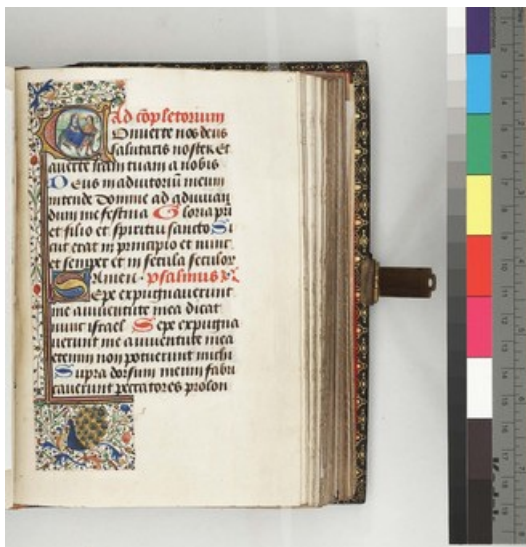 Ad cōpletorium
Onuerte nos deus
salutaris noster. Et
auerte iram tuam a nobis
Deus in adiutoriū meum
intende Domine ad adiuuan
dum me festina Gloria pri
et filio et spiritui sancto Si
cut erat in principio et nunc
et semper et in secula seculor
Amen. psalmus
Sepe expugnauerunt
me a iuuentute mea dicat
nunc israel Sepe expugna
uerunt me a iuuentute mea
etenim non potuerunt michi
Supra dorsum meum fabri
cauerunt peccatores prolon